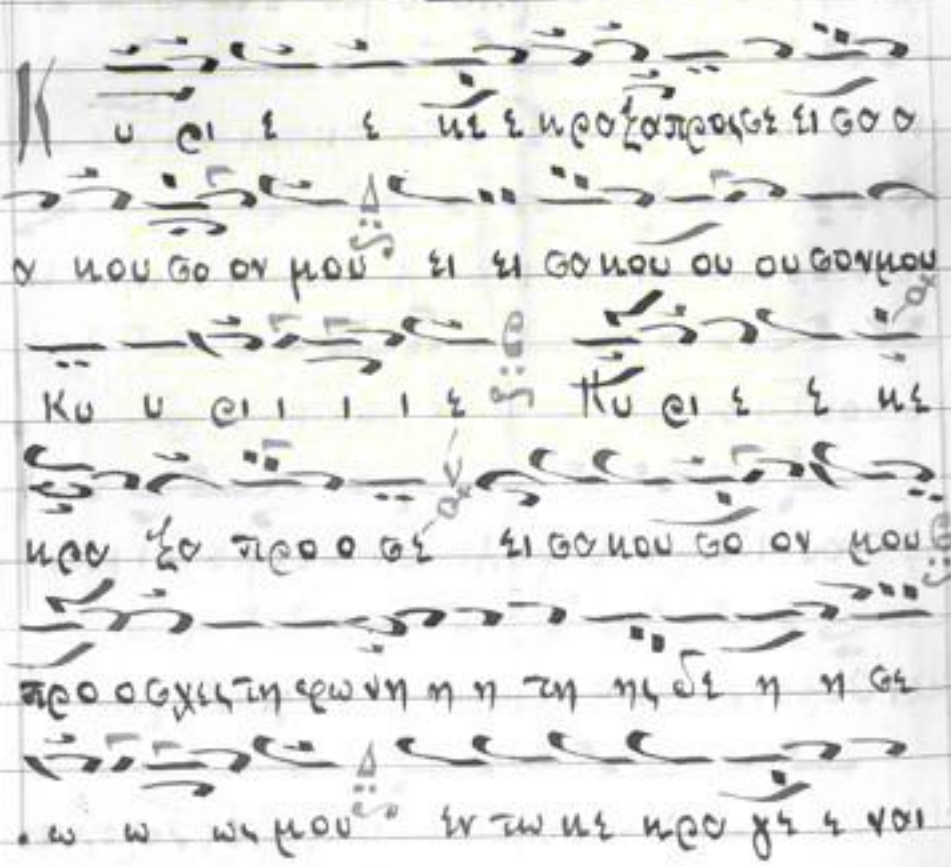 Κ υ ρι ε ε κε ε κρα ξα προς σε ει σα α
α κου σο ον μου ει ει σα κου ου ου σον μου
Κυ υ ρι ι ι ι ε Κυ ρι ε ε κε
κρα ξα προ ο σε ει σα κου σο ον μου
προ ο σχες τη φω νη η η τη ης δε η η σε
ω ω ως μου εν τω κε κρα γε ε ναι